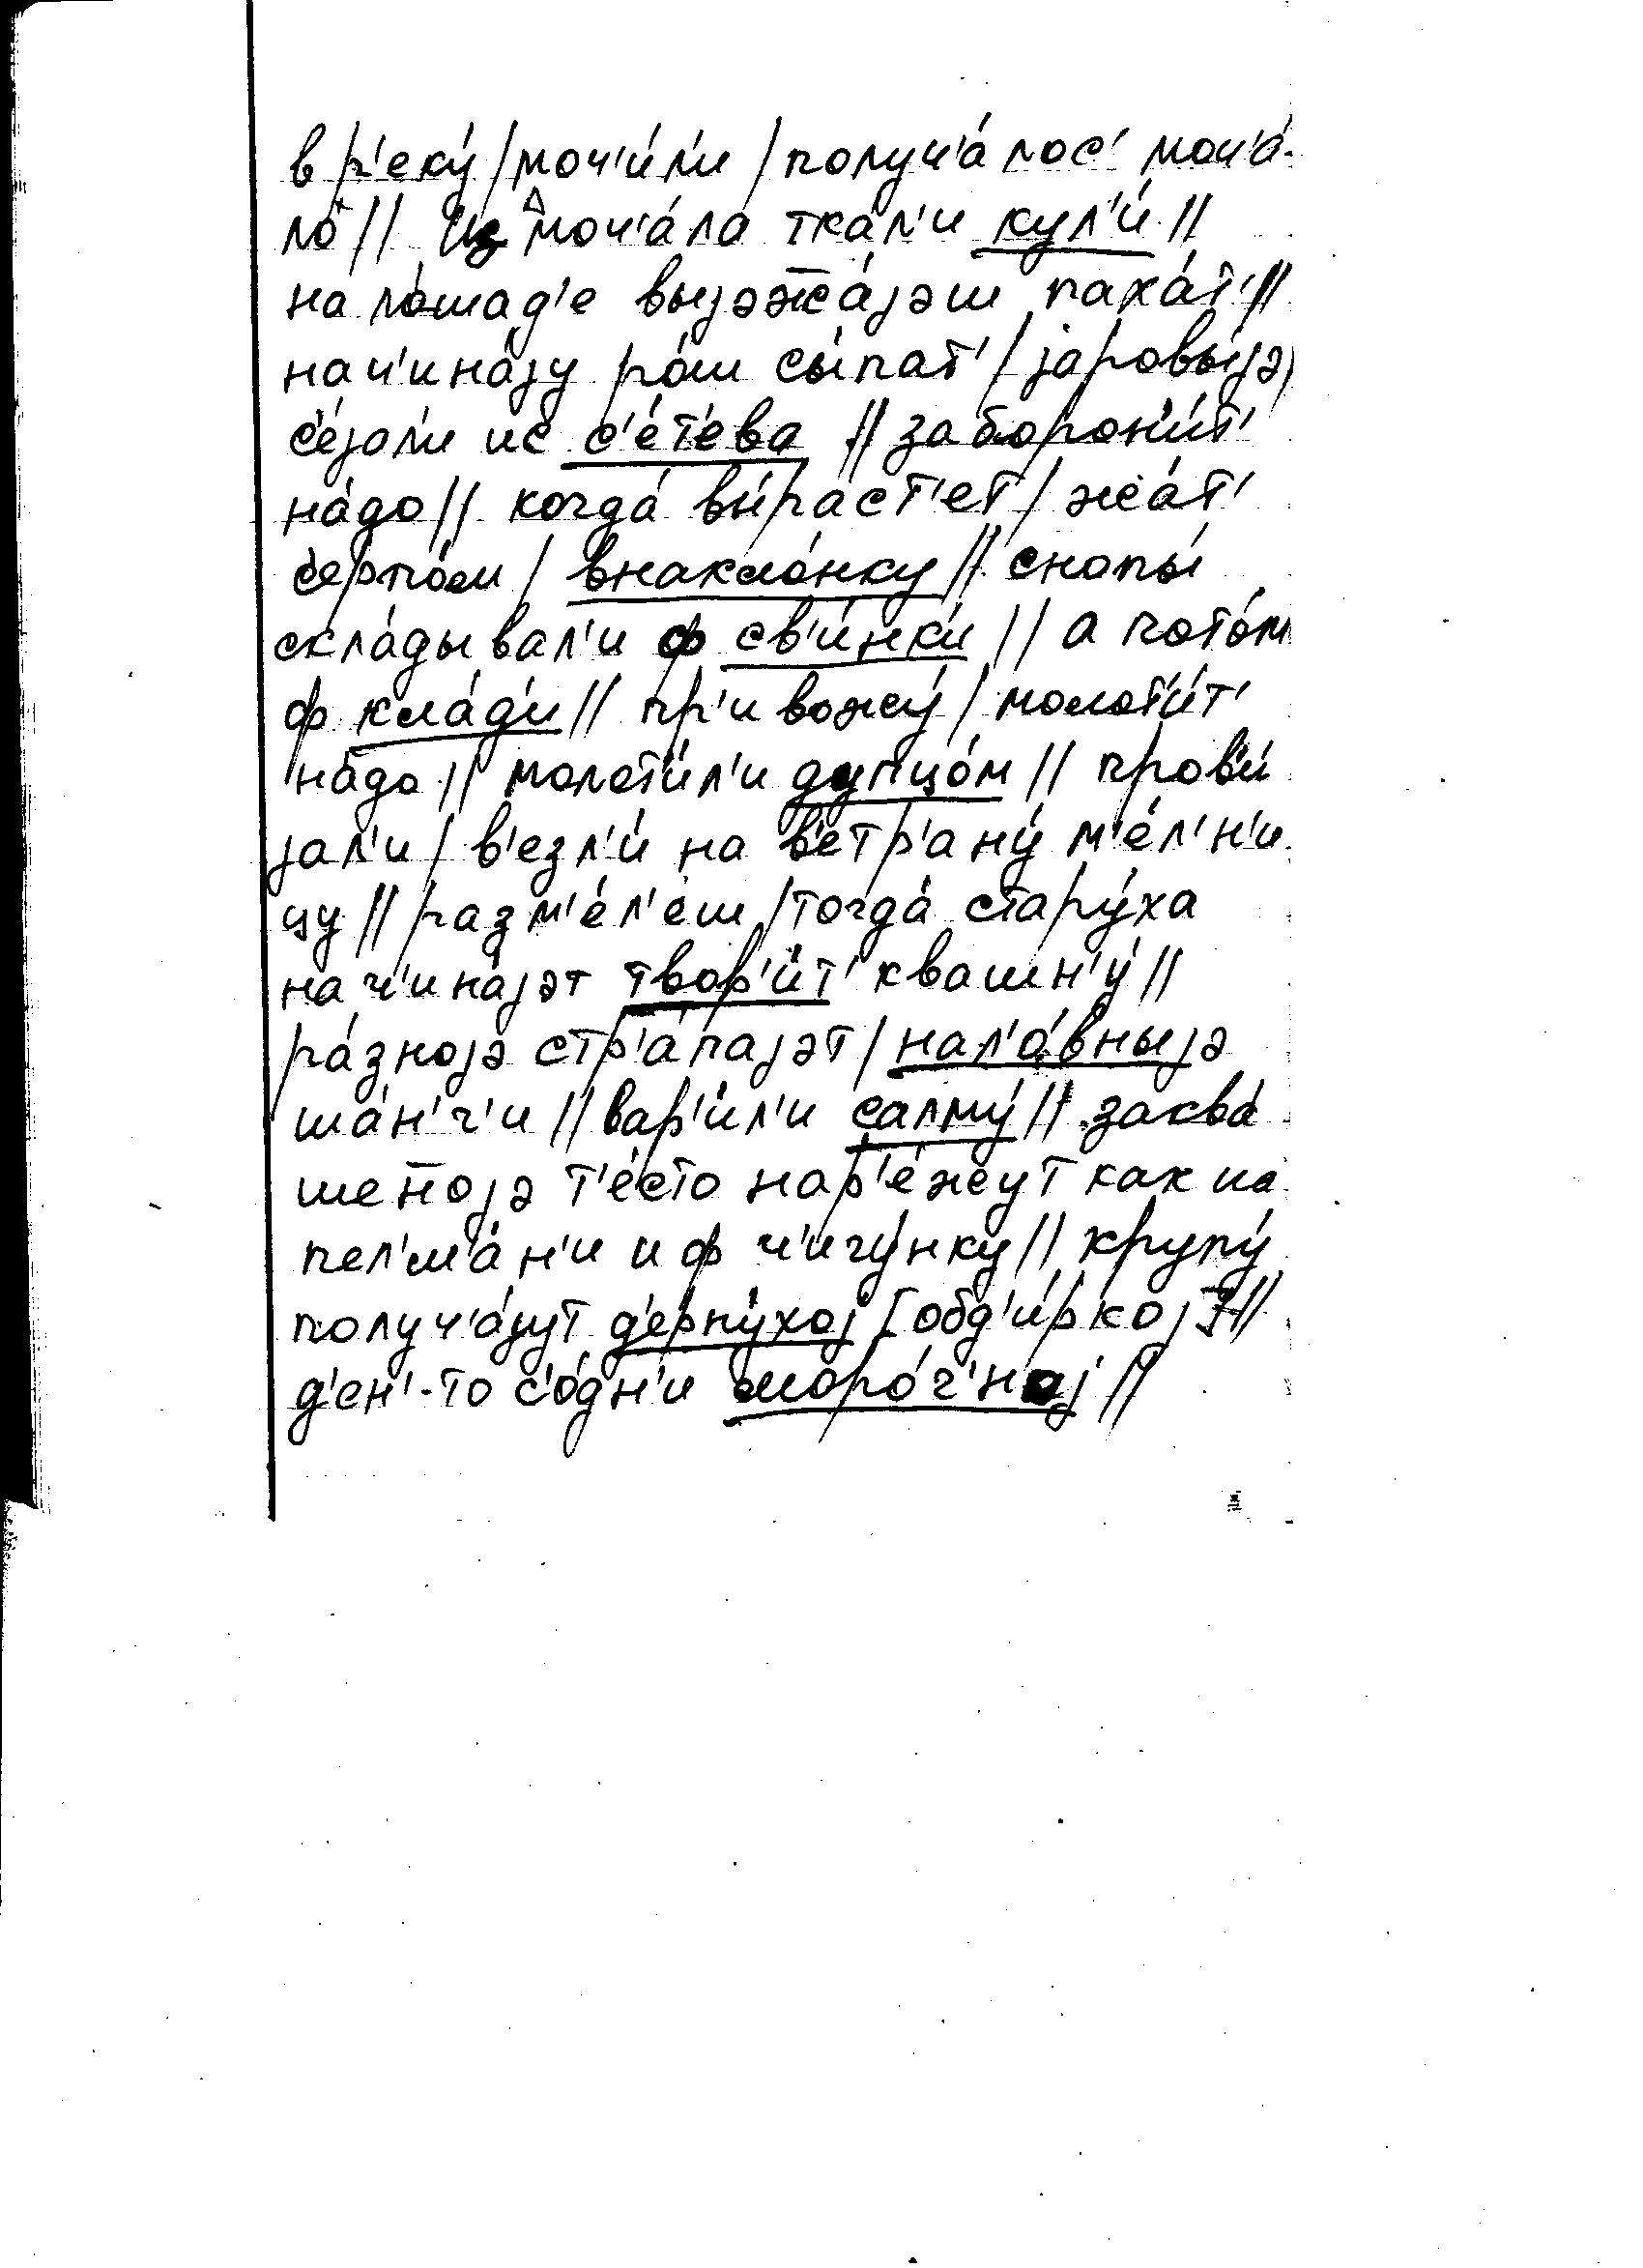 в р'еку́ / моч'и́л'и / получ'а́лос' моч'а́-
ло // Из моч'а́ла тка́л'и кул'и́ //
на ло́шад'е выјэж̅а́јэш паха́т' //
нач'ина́ју ро́ш сы́пат' / јаровы́јэ
с'е́јал'и ис с'е́т'ева // заборон'и́т'
на́до // когда́ вы́раст'ет / жа́т'
серпо́м / внакло́нку // снопы́
скла́дывал'и ф св'и́нк'и // а пото́м
ф кла́д'и // пр'ивожу́ / молот'и́т'
на́до // молот'и́л'и дупцо́м // пров'и́
јал'и / в'езл'и́ на в'етр'ану́ м'е́л'н'и
цу // разм'е́л'еш / тогда́ стару́ха
нач'ина́јэт твор'и́т' квашн'у́ //
ра́знојэ стр'а́пајэт / нал'о́вныјэ
ша́н'г'и // вар'и́л'и салму́ // заква́
шен̅ојэ т'е́сто нар'е́жут как на
пел'м'а́н'и и ф ч'игу́нку // крупу́
получ'а́јут д'ерпу́хој [обд'и́ркој] //
д'ен'-то с'о́дн'и моро́г'ној //